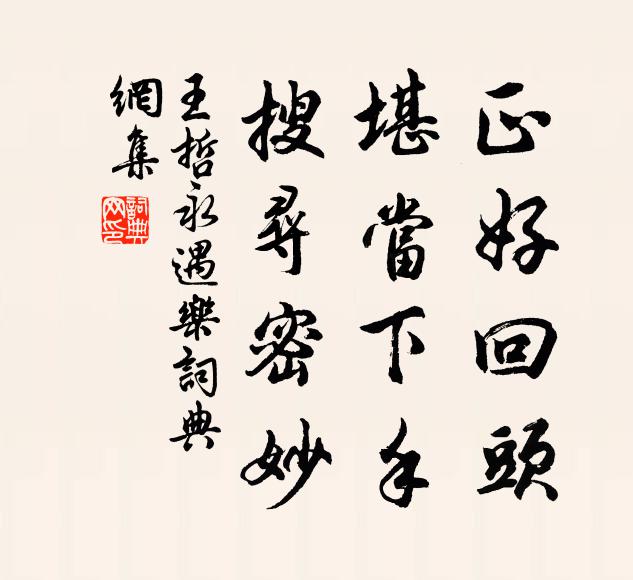 正好回頭
堪當下手
搜尋密妙
王哲永遇樂詞典
網集
詞典網印